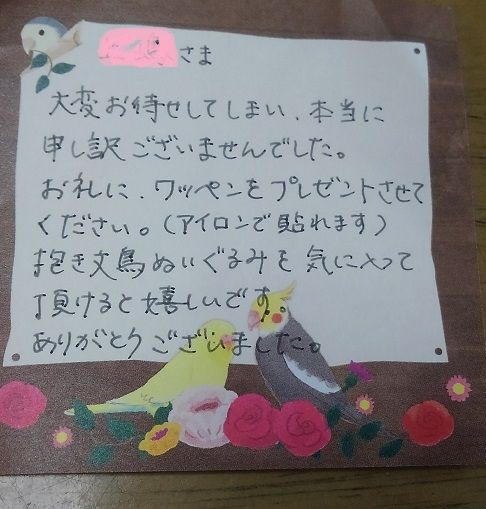 さま
大変お待せしてしまい、本当に
申し訳ございませんでした。
お礼に、ワッペンをプレゼントさせて
ください。(アイロンで貼れます)
抱き文鳥ぬいぐるみを気に入って
頂けると嬉しいです
ありがとうございました。